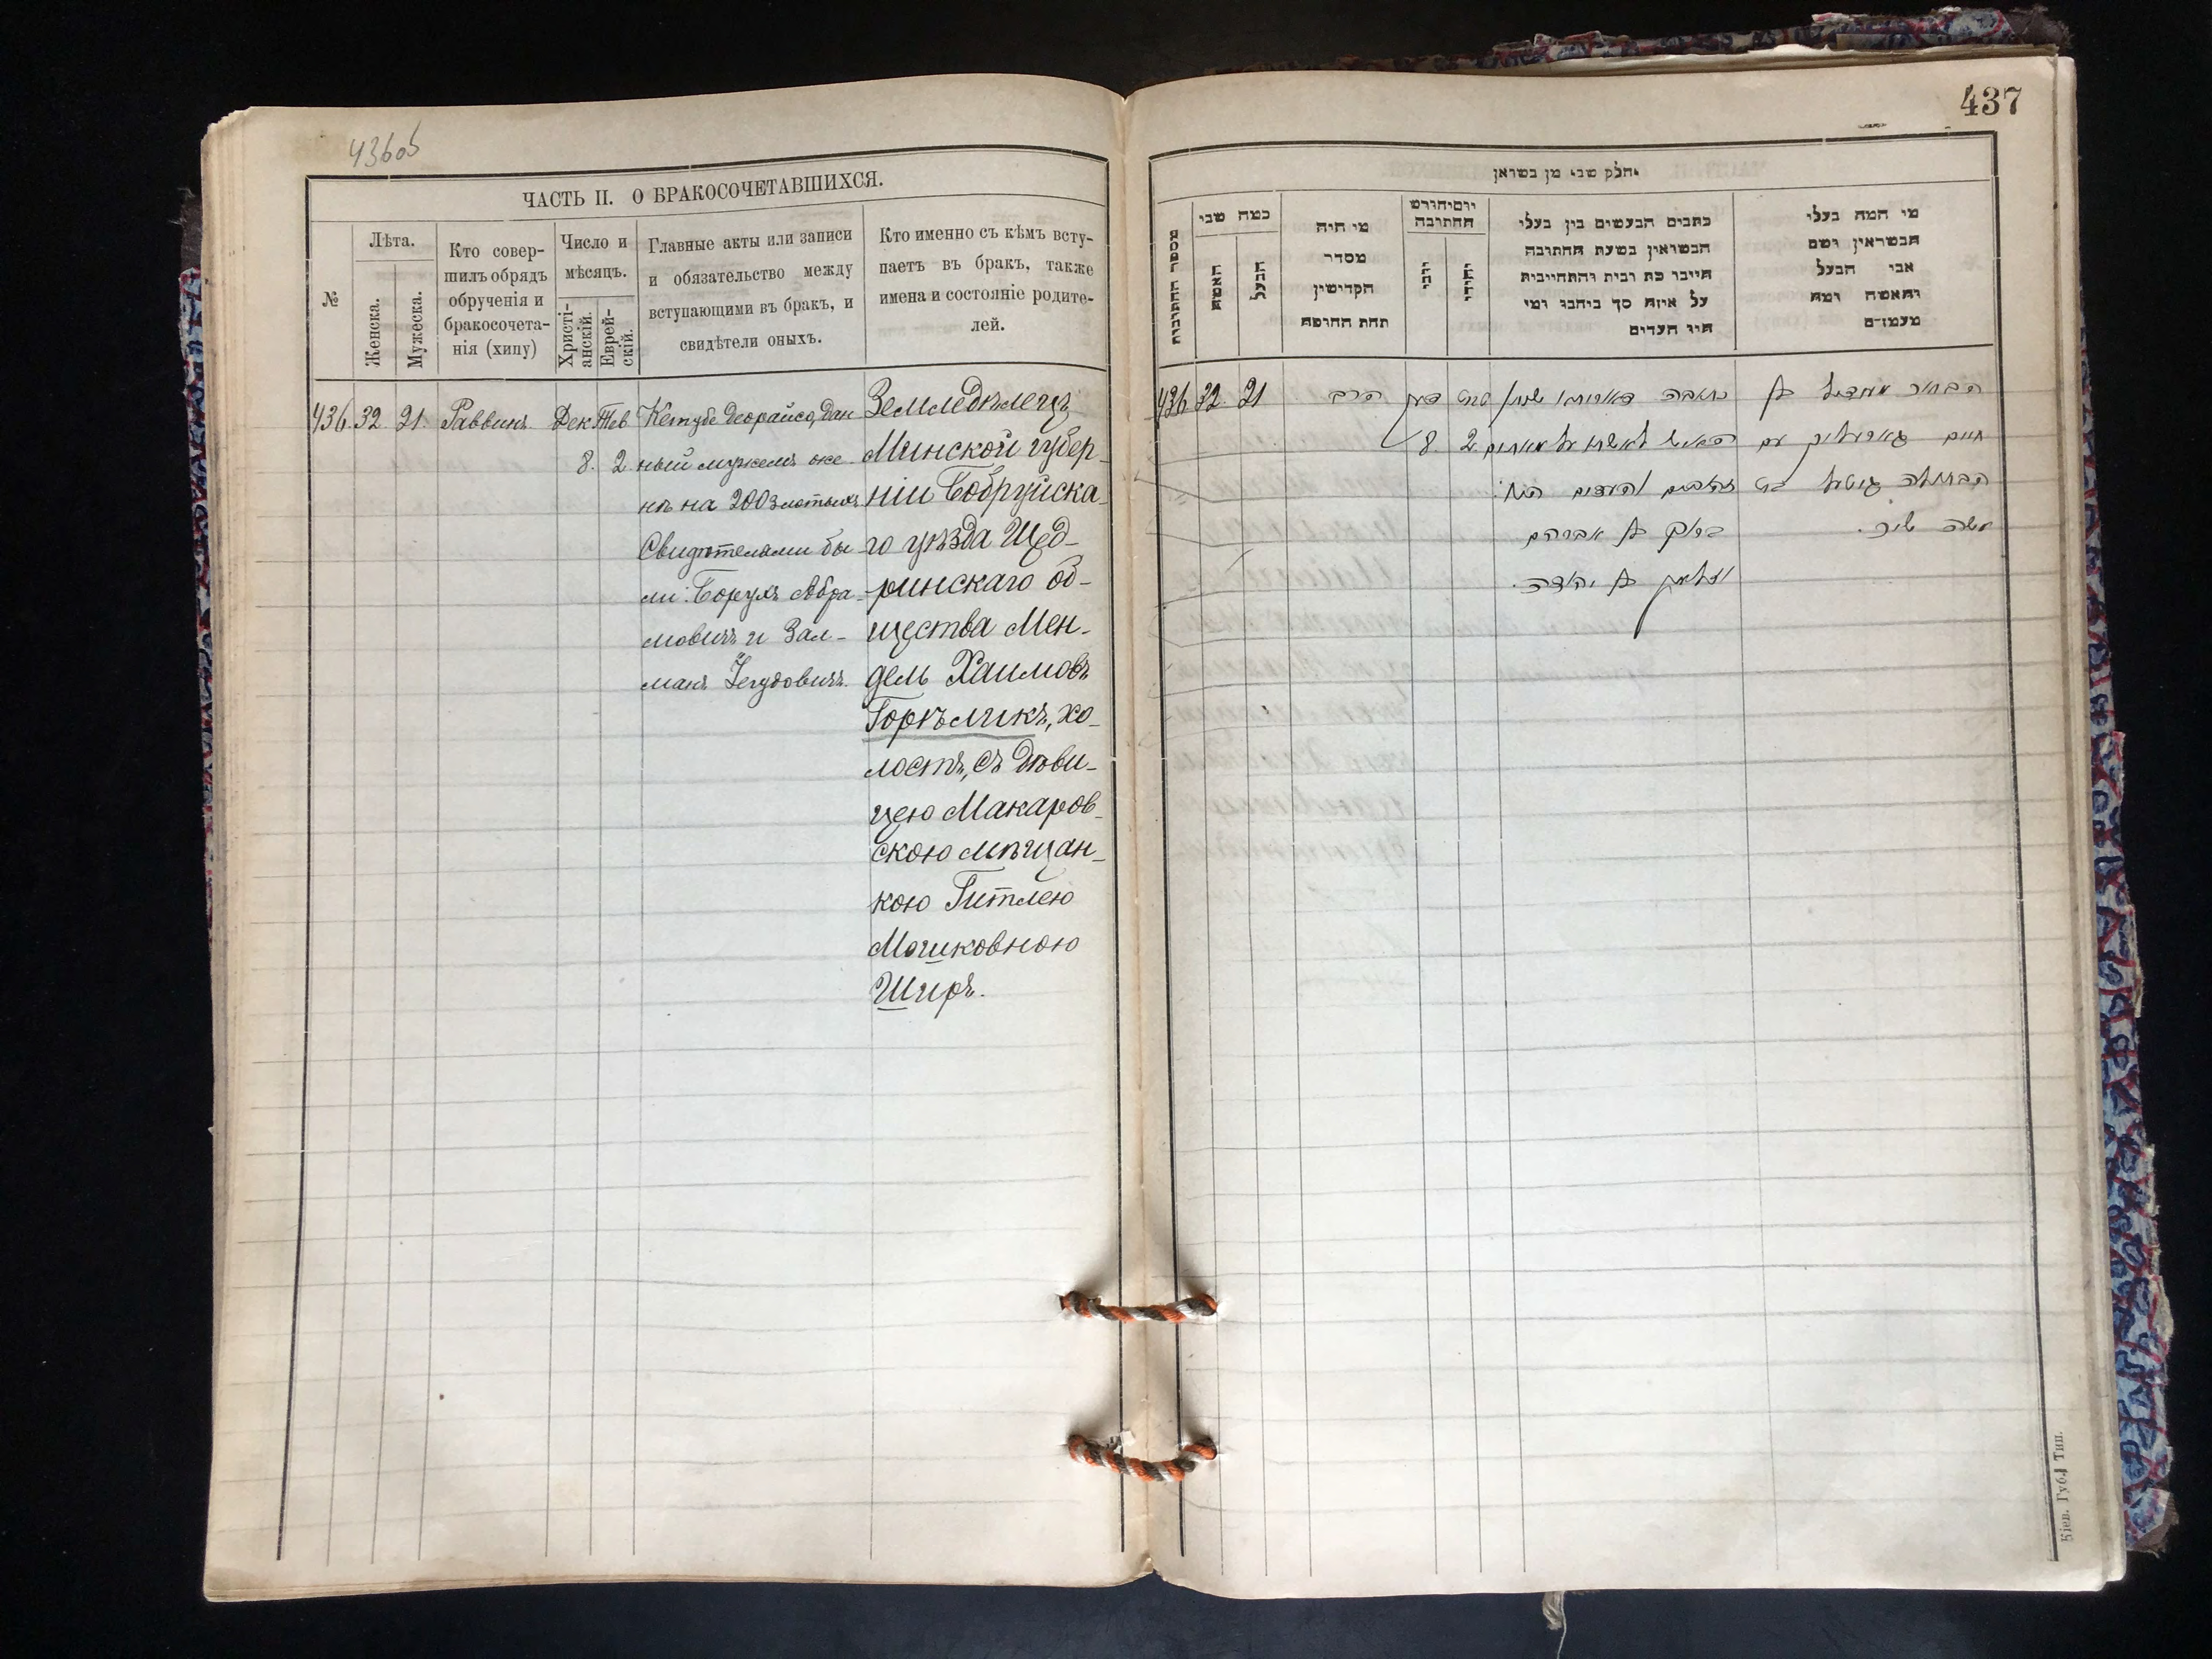 436об
ЧАСТЬ II. О БРАКОСОЧЕТАВШИХСЯ.
№
Лѣта.
Женска.
Мужеска.
Кто совер-
шилъ обрядъ
обрученія и
бракосочета-
нія (хипу)
Число и
мѣсяцъ.
Христі-
анскій.
Еврей-
скій.
Главные акты или записи
и обязательство между
вступающими въ бракъ, и
свидѣтели оныхъ.
Кто именно съ кѣмъ всту-
паетъ въ бракъ, также
имена и состояніе родите-
лей.
436. 32. 21. Раввинъ. Дек Тев
8. 2.
Кетубе деорайсо, дан
ный мужемъ же-
нѣ на 200 златыхъ
Свидѣтелями бы
ли: Борухъ Абра-
мовичъ и Зал-
манъ Іегудовичъ.
Земледѣлецъ
Минской губер-
ніи Бобруйска-
го уѣзда Щед-
ринскаго об-
щества Мен-
дель Хаимовъ
Горѣликъ, хо-
лостъ, съ дѣви-
цею Макаров-
скою мѣщан-
кою Гитлею
Мошковною
Ширъ.
437
חלק שני מן נשואן
מספר החתונות
כמה שני
האשה
הבעל
מי היה
מסדר
הקדישין
תחת החופה
יום וחודש
החתונה
יהודי
כתבים הנעשים בין בעלי
הנשואין בשעת החתונה
היינו כת רבית והתחייבות
על איזה סך ניתנו ומי
היו העדים
מי המה בעלי
הנשואין ושם
אבי הבעל
והאשה ומה
מעמדם
436 32. 21 הרב דעק טבת
8. 2.
כתובה דאורייתא שנתן
האיש לאשתו על מאתים
זהובים והעדים היו:
ברוך בן אברהם
וזלמן בן יהודה.
הבחור מענדיל בן
חיים גארעליק עם
הבתולה גיטיל בת
משה שיר.
Кіев. Губ. Тип.